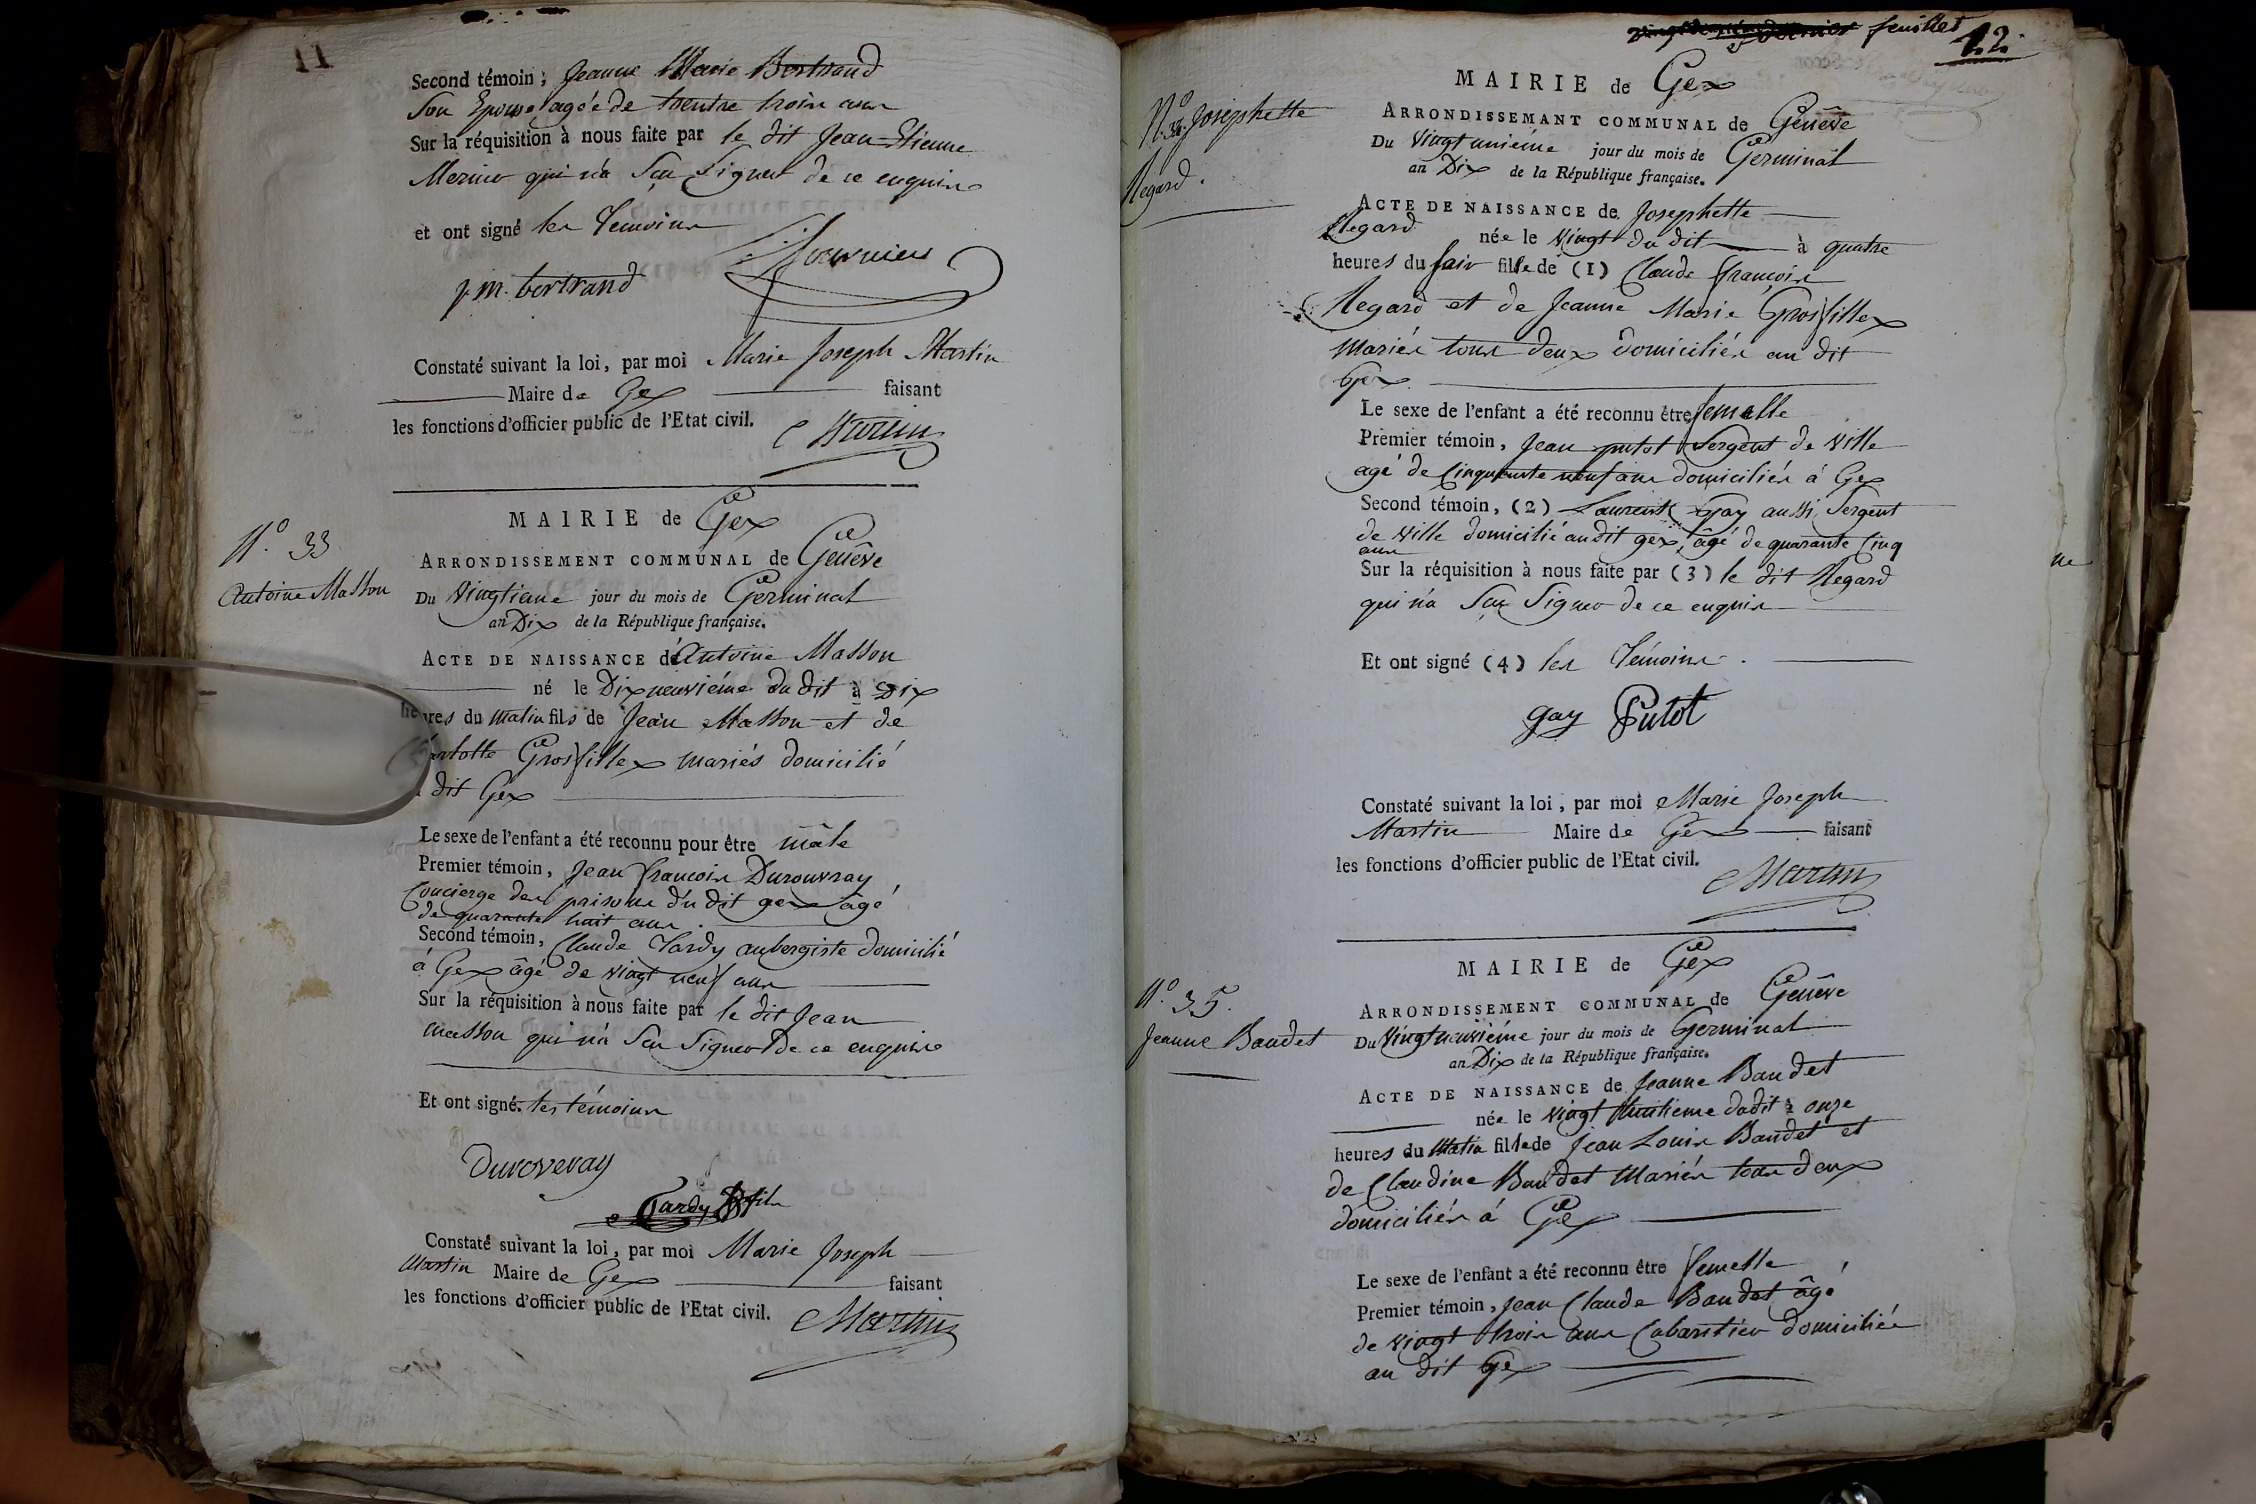 11
Second témoin, Jeanne Marie Bertrand
son Epouse agée de trentre trois ans
Sur la réquisition à nous faite par le dit Jean-Etienne
qui n'a Scu Signer de ce enquis
et ont signé les Temoins
Fournier
j. m. bertrand
Constaté suivant la loi, par moi Marie Joseph Martin
Maire de Gex faisant
les fonctions d'officier public de l'Etat civil.
Martin
N.º 33
Antoine Masson
MAIRIE de Gex
ARRONDISSEMENT COMMUNAL de Genêve
Du Vingtieme jour du mois de Germinal
an Dix de la République française.
ACTE DE NAISSANCE de Antoine Masson
né le Dixneuvième du dit à Dix
heures du matin fils de Jean Masson et de
Charlotte Grosfillex mariés domicilié
dit Gex
Le sexe de l'enfant a été reconnu pour être mâle
Premier témoin, Jean francois Durouvray
Concierge des prisons du dit gex âgé
de quarante huit ans.
Second témoin, Claude Tardy aubergiste domicilié
à Gex âgé de vingt neuf ans
Sur la réquisition à nous faite par le dit Jean
masson qui n'a Scu Signer De ce enquis
Et ont signé. les témoins
Duroveray
Tardy fils
Constaté suivant la loi, par moi Marie Joseph
Martin Maire de Gex faisant
les fonctions d'officier public de l'Etat civil.
Martin
feuillet
12.
N.º 34. Josephette
Regard.
MAIRIE de Gex
ARRONDISSEMANT COMMUNAL de Genêve
Du Vingt unième jour du mois de Germinal
an Dix de la République française.
ACTE DE NAISSANCE de Josephette
Regard née le Vingt du dit à quatre
heures du soir fille de (1) Claude françois
Regard et de Jeanne Marie Grosfillex
Mariés tous deux domiciliés au dit
Gex.
Le sexe de l'enfant a été reconnu être femelle
Premier témoin, Jean putot Sergent de Ville
agé de Cinquante neuf ans domiciliés à Gex
Second témoin, (2) Laurent Gay aussi Sergent
de Ville domicilié audit gex, âgé de quarante Cinq
ans
Sur la réquisition à nous faite par (3) le dit Regard
qui n'a Scu Signer de ce enquis
Et ont signé (4) les Témoins.
gay Putot
Constaté suivant la loi, par moi Marie Joseph
Martin Maire de Gex faisant
les fonctions d'officier public de l'Etat civil.
Martin
N.º 35.
Jeanne Baudet
MAIRIE de Gex
ARRONDISSEMENT COMMUNAL de Genêve
Du Vingt neuvième jour du mois de Germinal
an Dix de la République française.
ACTE DE NAISSANCE de Jeanne Baudet
née le vingt huitieme dudit à onze
heures du Matin fille de Jean Louis Baudet et
de Claudine Baudet Mariés tous deux
domiciliés à Gex
Le sexe de l'enfant a été reconnu être femelle
Premier témoin, Jean Claude Baudet âgé
de vingt trois ans Cabaretier domiciliés
au dit Gex
ne